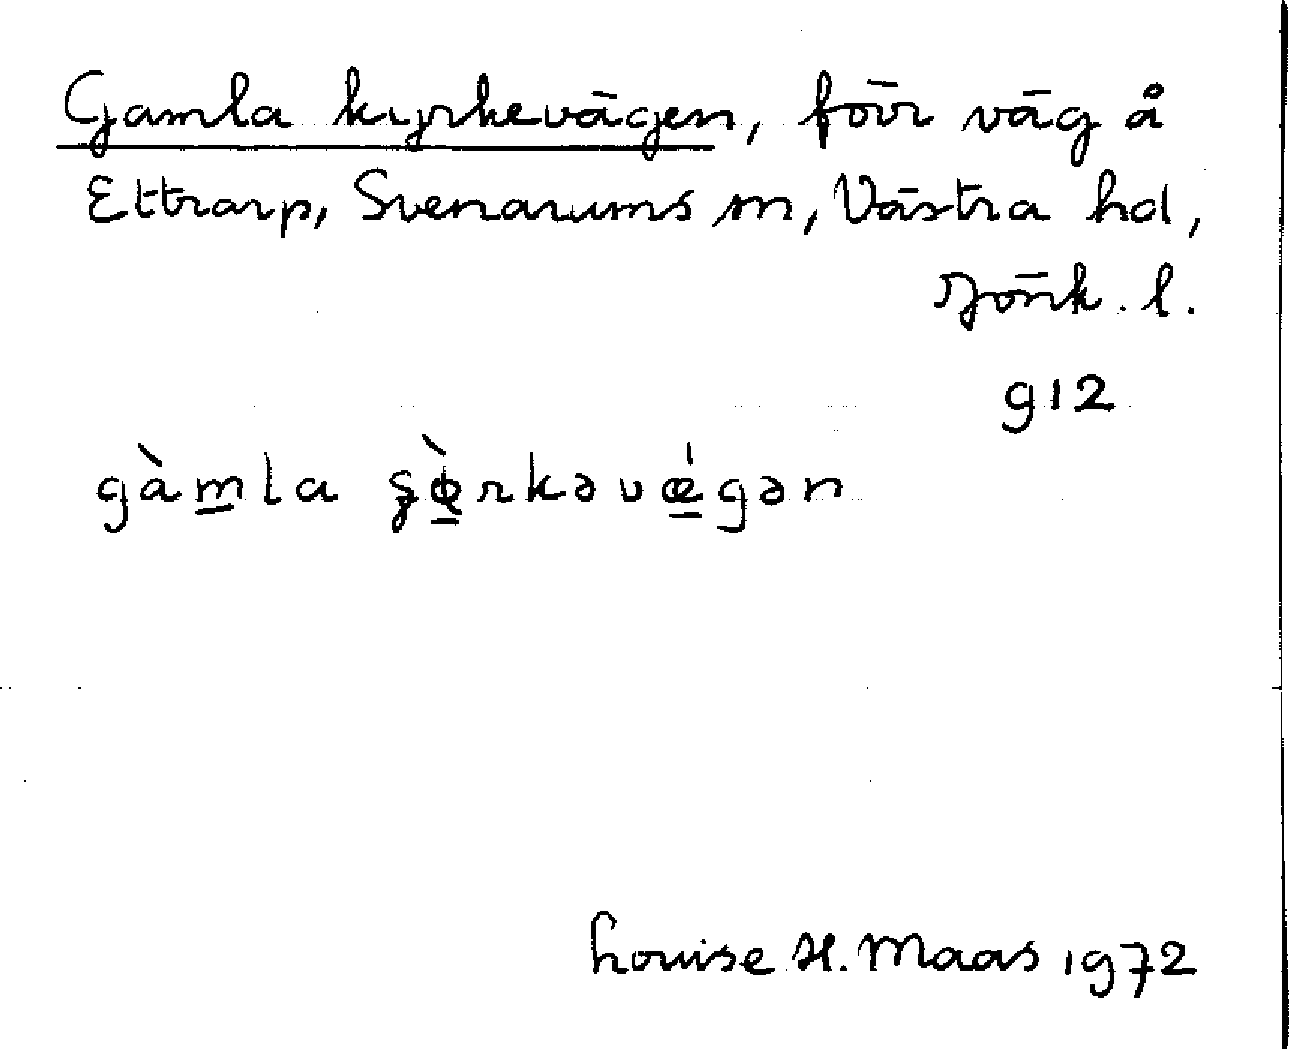 Gamla kyrkevägen, förr väg å
Ettrarp, Svenarums sn, Västra hd,
Jönk. l.
g12
gàm̲la ʂø̲̀rkəvǽ̲gən
Louise H. Maas 1972